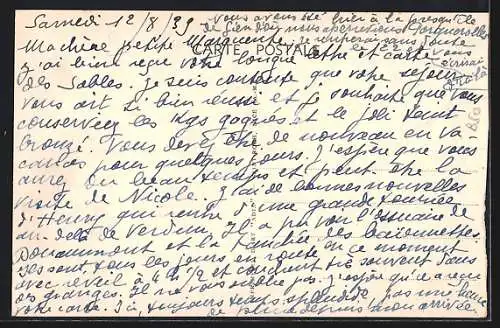 Samedi 12/8/39
Vous avons été hier à la presqu'île
de Gien d'où nous apercevions Porquerolles
Ma chère petite Marguerite,
CARTE POSTALE
J'ai bien reçu votre longue lettre et carte
des Sables. Je suis contente que votre séjour
vous ait si bien réussi et je souhaite que vous
conserviez les kgs gagnés et le joli teint
bronzé. Vous devez être de nouveau en va-
cances pour quelques jours. J'espère que vous
aurez du beau temps et peut-être la
visite de Nicole. J'ai de bonnes nouvelles
d'Henry qui rentre d'une grande tournée
au-delà de Verdun. Il a pu voir l'Ossuaire de
Douaumont et la tranchée des baïonnettes.
Ils sont tous les jours en route en ce moment
avec réveil à 4h 1/2 et couchent très souvent dans
des granges. Il ne vous oublie pas. J'espère qu'il a reçu
votre carte. Ici, toujours temps splendide, pas une
de pluie depuis mon arrivée.